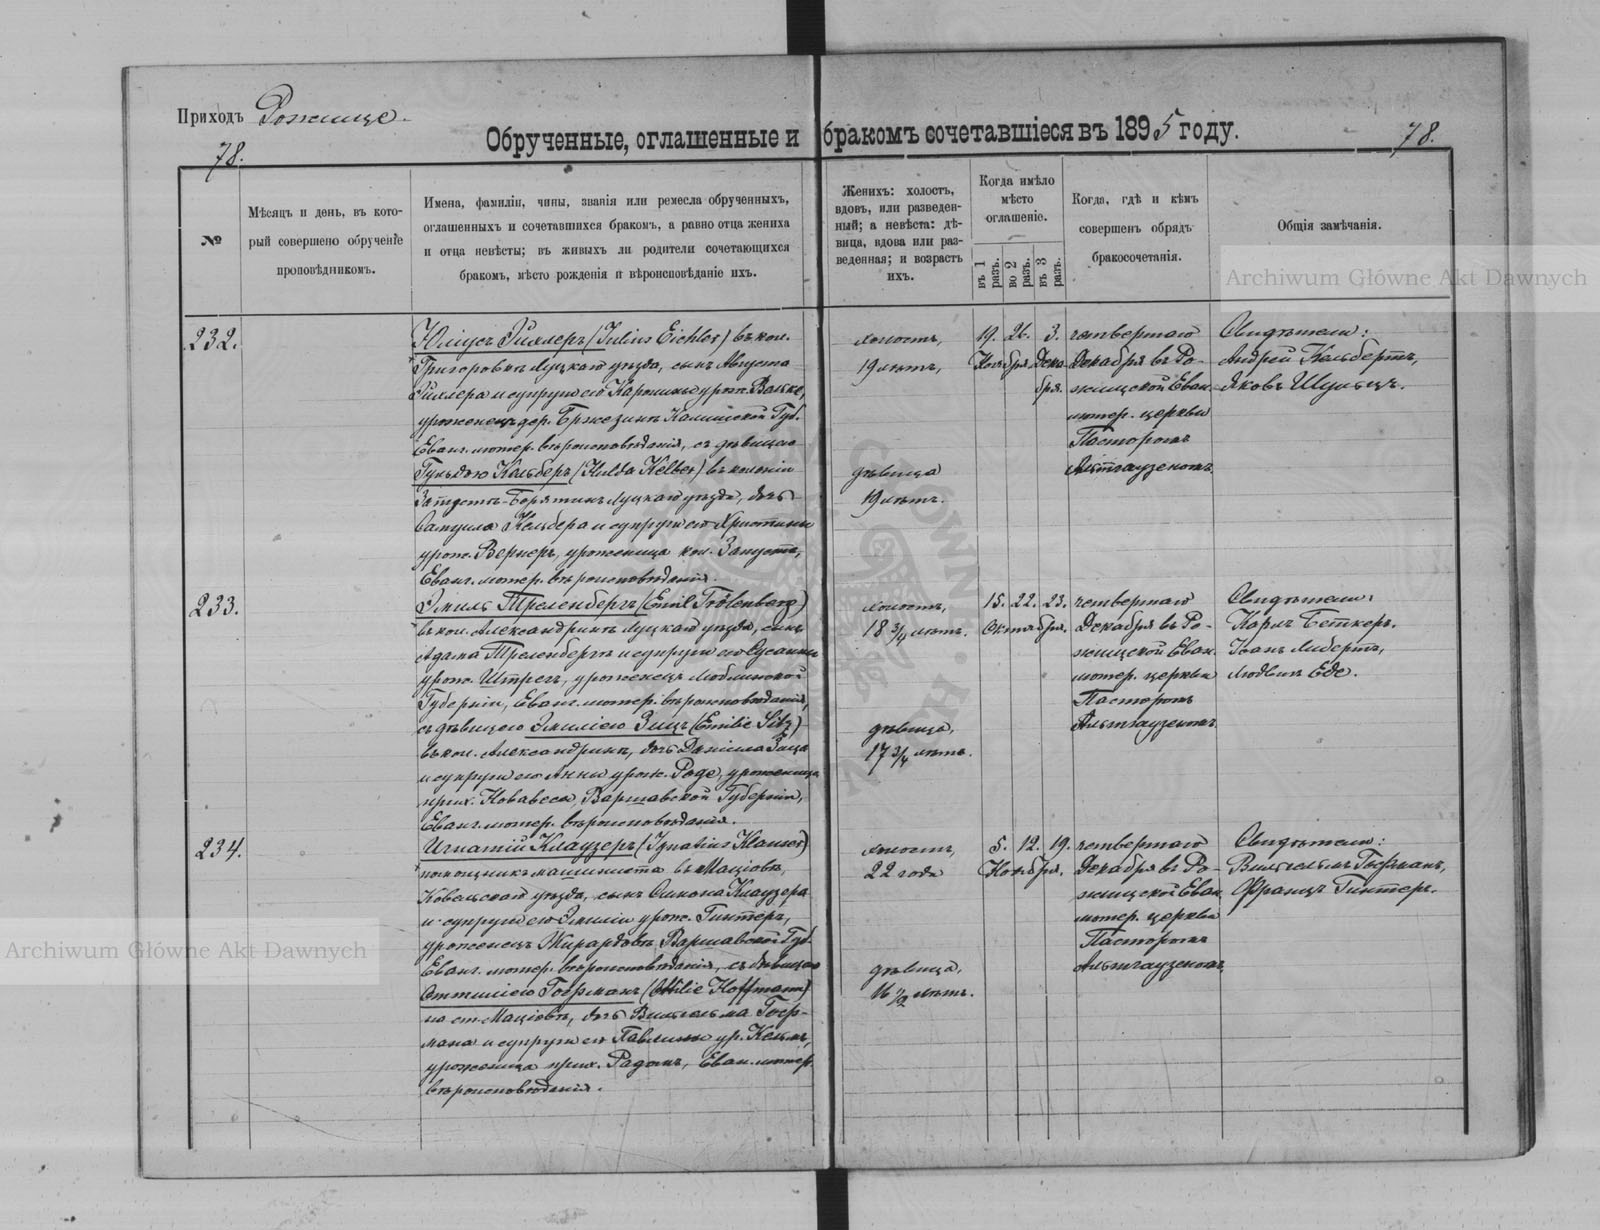 Приходъ Рожище.
Обрученные, оглашенные и бракомъ сочетавшіеся въ 1895 году.
78.
78.
№
Мѣсяцъ и день, въ кото-
рый совершено обрученіе
проповѣдникомъ.
Имена, фамиліи, чины, званія или ремесла обрученныхъ,
оглашенныхъ и сочетавшихся бракомъ, а равно отца жениха
и отца невѣсты; въ живыхъ ли родители сочетающихся
бракомъ, мѣсто рожденія и вѣроисповѣданіе ихъ.
Женихъ: холостъ,
вдовъ, или разведен-
ный; а невѣста: дѣ-
вица, вдова или раз-
веденная; и возрастъ
ихъ.
Когда имѣло
мѣсто
оглашеніе.
въ 1 разъ.
во 2 разъ.
въ 3 разъ.
Когда, гдѣ и кѣмъ
совершенъ обрядъ
бракосочетанія.
Общія замѣчанія.
Archiwum Główne Akt Dawnych
232.
Юліусъ Эйхлеръ (Julius Eichler) въ кол.
Григоровкѣ Луцкаго уѣзда, сынъ Августа
Эйхлера и супруги его Каролины урож. Вальке,
уроженецъ дер. Бржезинъ Калишской Губ.
Еванг. лютер. вѣроисповѣданія, съ дѣвицею
Гульдою Кельберъ (Hulda Kelber) въ колоніи
Запустъ-Борятинъ Луцкаго уѣзда, дочь
Самуила Кельбера и супруги его Христины
урож. Вернеръ, уроженица кол. Запустъ,
Еванг. лютер. вѣроисповѣданія.
холостъ,
19 лѣтъ,
дѣвица
19 лѣтъ.
19. 26. 3.
Ноября Дека-
бря.
четвертаго
Декабря въ Ро-
жищской Еван.
лютер. церкви
Пасторомъ
Альтгаузеномъ
Свидѣтели:
Андрей Кельбертъ,
Яковъ Шульцъ.
233.
Эмиль Трёленбергъ (Emil Trölenberg)
въ кол. Александринѣ Луцкаго уѣзда, сынъ
Адама Трёленбергъ и супруги его Сусанны
урож. Штрегъ, уроженецъ Люблинской
Губерніи, Еванг. лютер. вѣроисповѣданія,
съ дѣвицею Эмиліею Зицъ (Emilie Sitz)
въ кол. Александринѣ, дочь Даніила Зица
и супруги его Анны урож. Роде, уроженица
прих. Новавеса, Варшавской Губерніи,
Еванг. лютер. вѣроисповѣданія.
холостъ,
18 3/4 лѣтъ.
дѣвица,
17 3/4 лѣтъ.
15. 22. 23.
Октября.
четвертаго
Декабря въ Ро-
жищской Еван.
лютер. церкви
Пасторомъ
Альтгаузеномъ
Свидѣтели:
Карлъ Беткеръ.
Іоанъ Либертъ,
Людвикъ Еде.
234.
Игнатій Клаузеръ (Ignatius Klauser)
помощникъ машиниста въ Маціовѣ,
Ковельскаго уѣзда, сынъ Симона Клаузера
и супруги его Эмиліи урож. Гинтеръ,
уроженецъ Жирардовъ Варшавской Губ.
Еванг. лютер. вѣроисповѣданія, съ дѣвицею
Оттиліею Гофманъ (Ottilie Hoffmann)
на ст. Маціовъ, дочь Вильгельма Гоф-
мана и супруги его Павлины ур. Кельмъ,
уроженица прих. Радомъ, Еван. лютер.
вѣроисповѣданія.
холостъ,
22 года
дѣвица,
16 1/2 лѣтъ.
5. 12. 19.
Ноября.
четвертаго
Декабря въ Ро-
жищской Еван.
лютер. церкви
Пасторомъ
Альтгаузеномъ
Свидѣтели:
Вильгельмъ Гофманъ,
Францъ Гинтеръ.
Archiwum Główne Akt Dawnych